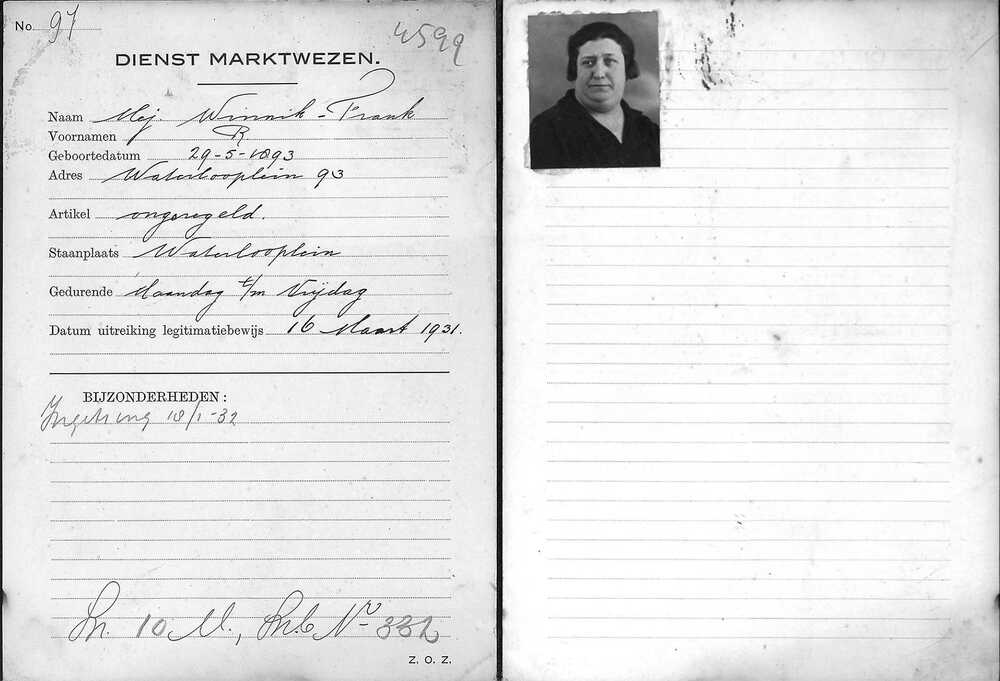 No 97
4599
DIENST MARKTWEZEN.
Naam Mej. Winnik - Frank
Voornamen R
Geboortedatum 29-5-1893
Adres Waterlooplein 93
Artikel ongeregeld.
Staanplaats Waterlooplein
Gedurende Maandag t/m Vrijdag
Datum uitreiking legitimatiebewijs 16 Maart 1931.
BIJZONDERHEDEN:
18/1-32
10 M., Nr 332
Z. O. Z.